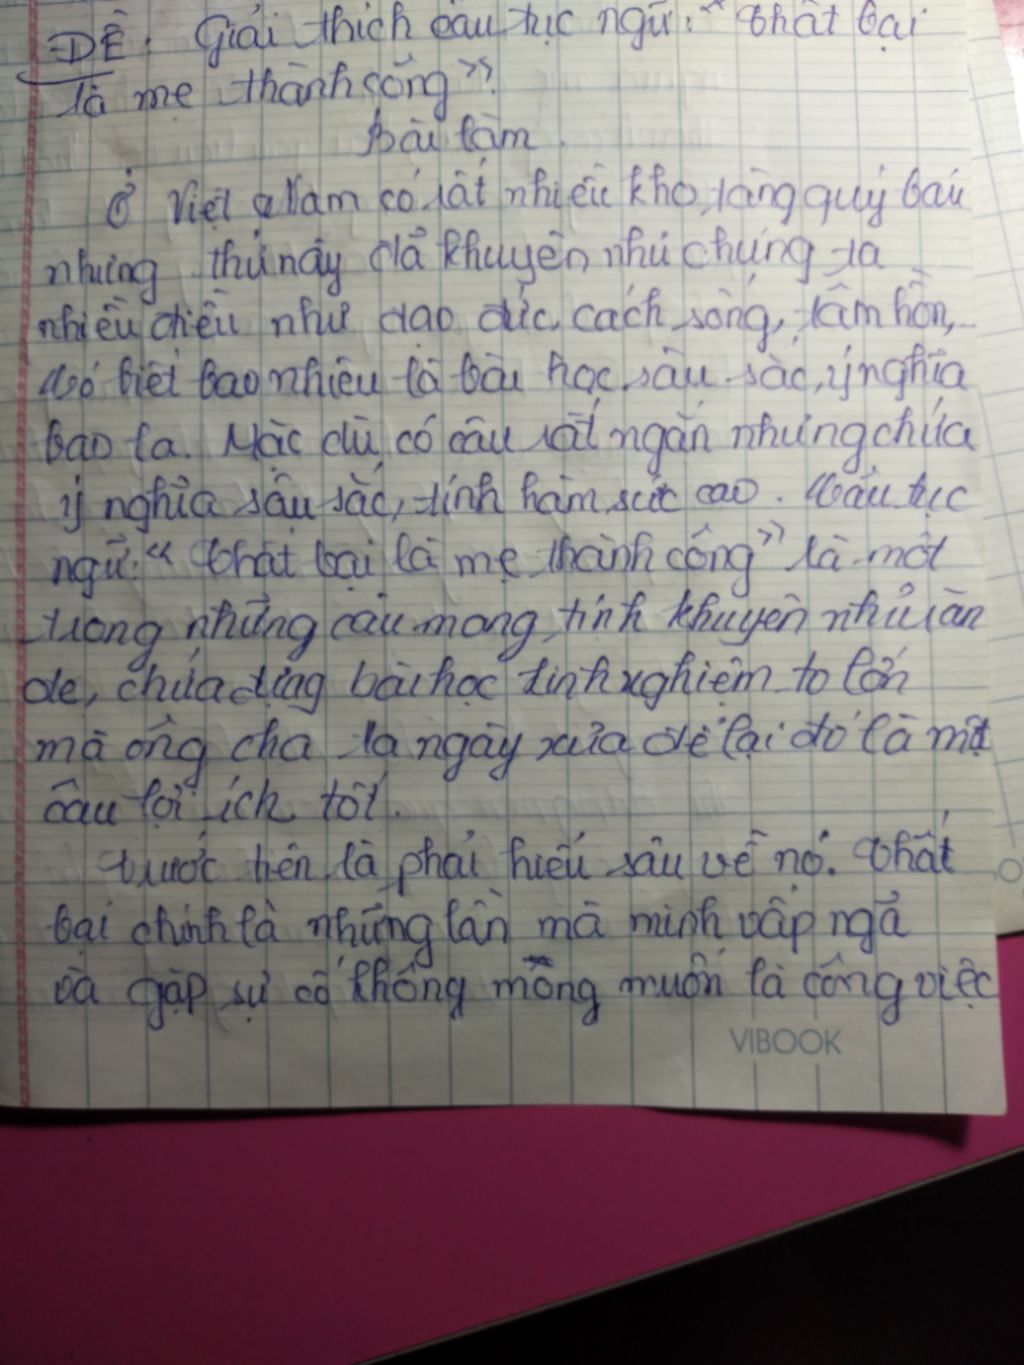 ĐỀ: Giải thích câu tục ngữ: "Thất bại
là mẹ thành công"?
Bài làm.
Ở Việt Nam có rất nhiều kho tàng quý báu
những thứ này đã khuyên nhủ chúng ta
nhiều điều như đạo đức, cách sống, tâm hồn,
Có biết bao nhiêu là bài học sâu sắc, ý nghĩa
bao la. Mặc dù có câu rất ngắn nhưng chứa
ý nghĩa sâu sắc, tính hàm súc cao. Câu tục
ngữ: "Thất bại là mẹ thành công" là một
trong những câu mang tính khuyên nhủ răn
đe, chứa đựng bài học kinh nghiệm to lớn
mà ông cha ta ngày xưa để lại đó là một
câu lợi ích tốt.
Trước tiên là phải hiểu sâu về nó. Thất
bại chính là những lần mà mình vấp ngã
và gặp sự cố không mong muốn là công việc
VIBOOK